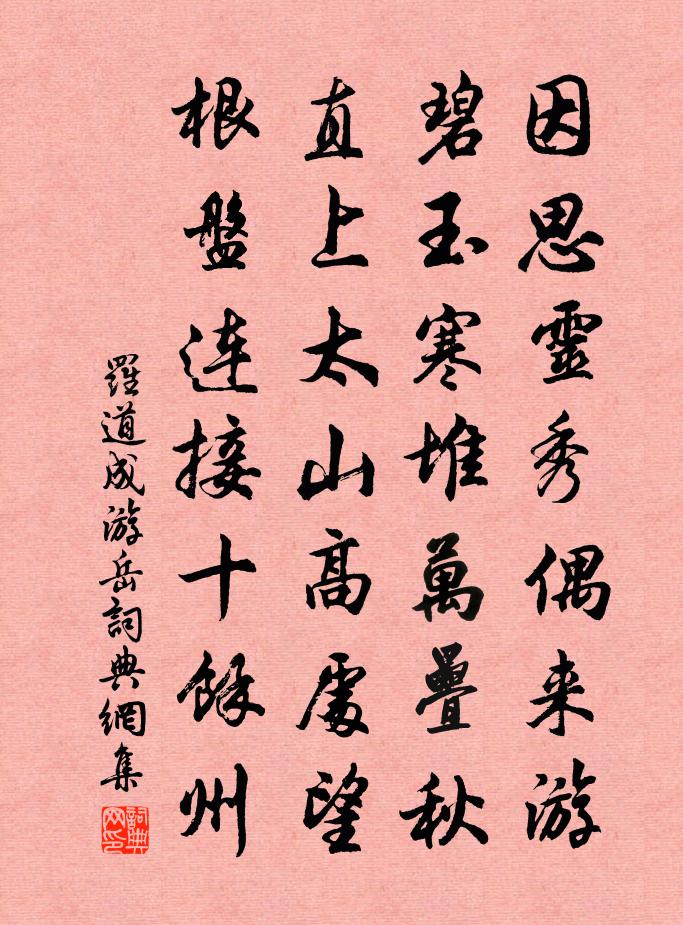 因思靈秀偶来游
碧玉寒堆萬疊秋
直上太山高處望
根盤连接十餘州
羅道成游岳詞典網集
詞典网印